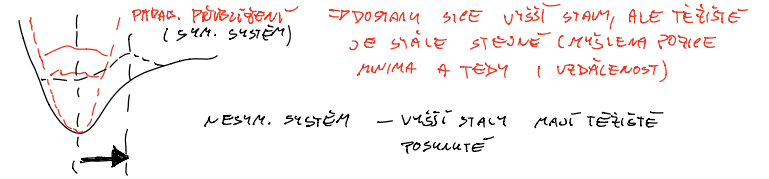 PARAB. PŘIBLÍŽENÍ ⇒ DOSTANU SICE VYŠŠÍ STAV, ALE TĚŽIŠTĚ
(SYM. SYSTÉM) JE STÁLE STEJNÉ (MYŠLENA POZICE
MINIMA A TEDY I VZDÁLENOST)
NESYM. SYSTÉM – VYŠŠÍ STAVY MAJÍ TĚŽIŠTĚ
POSUNUTÉ